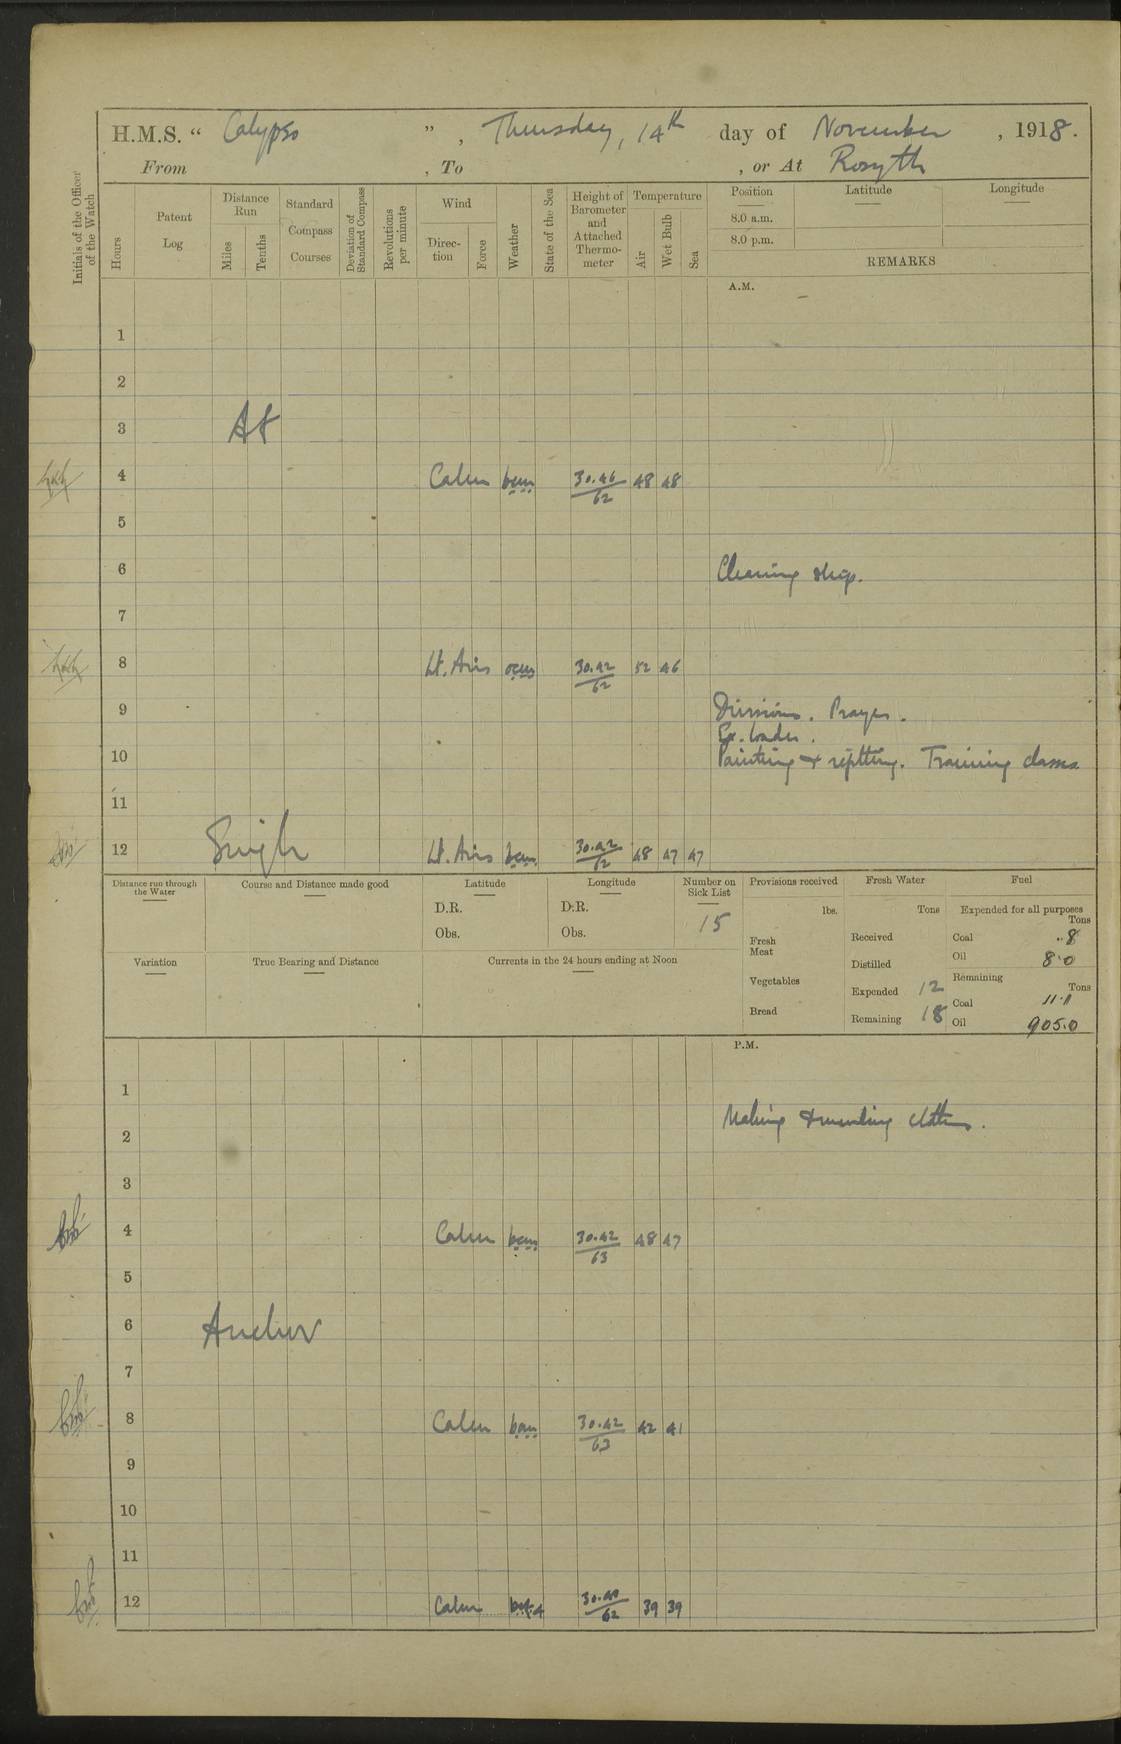 H.M.S. “ Calypso ” , Thursday, 14th day of November , 1918.
From , To , or At Rosyth
Initials of the Officer of the Watch
Hours
Patent Log
Distance Run
Miles
Tenths
Standard Compass Courses
Deviation of Standard Compass
Revolutions per minute
Wind
Direction
Force
Weather
State of the Sea
Height of Barometer and Attached Thermometer
Temperature
Air
Wet Bulb
Sea
Position
Latitude
Longitude
8.0 a.m.
8.0 p.m.
REMARKS
A.M.
1
2
3 At
4 Calm bcm 30.46/62 48 48
5
6 Cleaning ship.
7
8 Lt. Airs ocm 30.42/62 52 46
9 Divisions. Prayers.
Ex. loader.
10 Painting & refitting. Training classes
11
12 Single Lt. Airs bcm 30.42/62 48 47 47
Distance run through the Water
Course and Distance made good
Latitude
D.R.
Obs.
Longitude
D.R.
Obs.
Number on Sick List
15
Provisions received
lbs.
Fresh Meat
Vegetables
Bread
Fresh Water
Tons
Received
Distilled
Expended 12
Remaining 18
Fuel
Expended for all purposes
Tons
Coal ..8
Oil 8.0
Remaining
Tons
Coal 11.1
Oil 905.0
Variation
True Bearing and Distance
Currents in the 24 hours ending at Noon
P.M.
1
Making & mending clothes.
2
3
4 Calm bcm 30.42/63 48 47
5
6 Anchor
7
8 Calm bcm 30.42/63 42 41
9
10
11
12 Calm 30.40/62 39 39